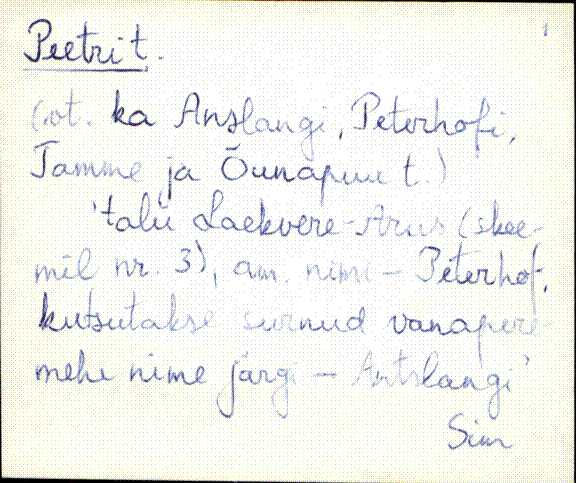 1
Peetri t.
(vt. ka Anslangi, Peterhofi,
Tamme ja Õunapuu t.)
'talu Laekvere-Arus (skee-
mil nr. 3), am. nimi - Peterhof,
kutsutakse surnud vanapere-
mehe nime järgi - Antslangi'
Sim